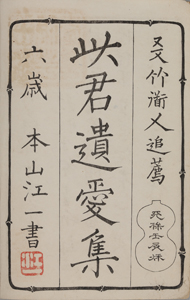 竹衜人追薦
此君遺愛集
六歲 本山江一書